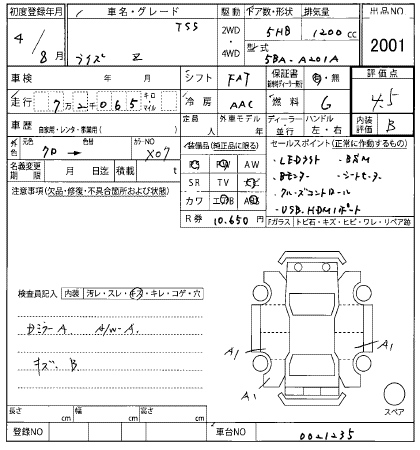 初度登録年月 車名・グレード 駆動 ドア数・形状 排気量 出品NO
TSS 2WD 5HB 1200 CC
4/8月 ライズ Z ・4WD 型式 5BA-A201A 2001
車検 年 月 シフト FAT 保証書 有・無 評価点
走行 7万2千065 キロ マイル 冷房 AAC 燃料 G 4.5
車歴 自家用・レンタ・事業用( ) 定員 人 外車モデル 年 ディーラー 並行 ハンドル 左・右 内装評価 B
外色 元色 クロ → カラーNO X07 装備品(純正品に限る) セールスポイント(正常に作動するもの)
PS PW AW ・LEDライト ・BSM
名義変更期限 月 日迄 積載 t SR TV ナビ ・Bモニター ・シートヒーター
注意事項(欠品・修復・不具合箇所および状態) カワ エアB ABS ・クルーズコントロール
R券 10,650円 ・USB,HDMIポート
Fガラス トビ石・キズ・ヒビ・ワレ・リペア跡
検査員記入 内装 汚レ・スレ・キズ・キレ・コゲ・穴
Dミラー A. A/W-A.
キズ. B
A1 A1
A1
スペア
長さ cm 幅 cm 高さ cm
登録NO 車台NO 0021235